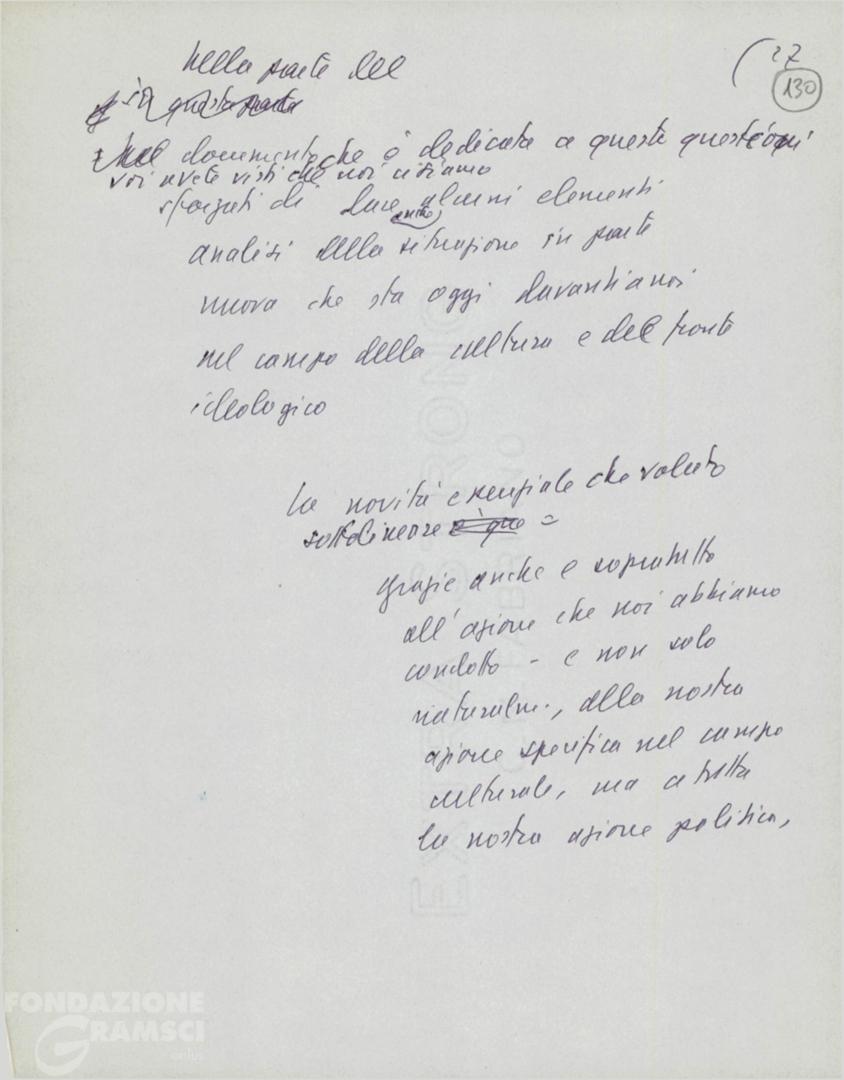 27
130
Nella parte del
in questa parte
documento che è dedicata a queste questioni
voi avete visto che noi ci siamo
sforzati di dare alcuni elementi
anche
analisi della situazione in parte
nuova che sta oggi davanti a noi
nel campo della cultura e del fronte
ideologico
La novità essenziale che va
sottolineare è que =
grazie anche e sopratutto
all'azione che noi abbiamo
condotto - e non solo
naturalm., alla nostra
azione specifica nel campo
culturale, ma a tutta
la nostra azione politica,
EXTRA STRONG
FONDAZIONE
GRAMSCI
onlus